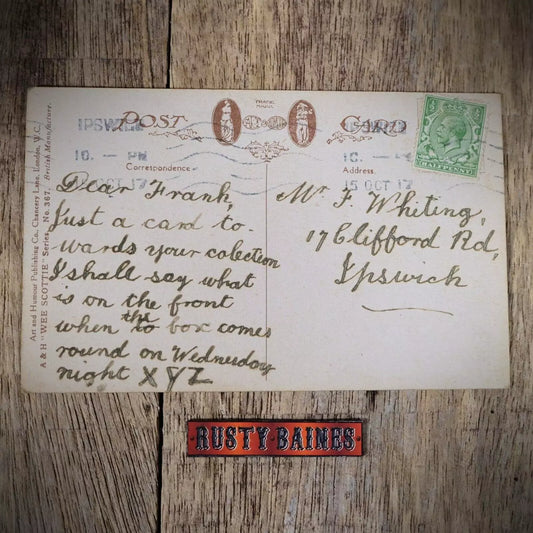 IPSWICH
10. - PM
15 OCT 17
POST CARD
TRADE MARK
Correspondence
Address.
IPSWICH
10. - PM
15 OCT 17
HALFPENNY
Art and Humour Publishing Co., Chancery Lane, London, W.C.
A & H "WEE SCOTTIE" Series, No. 367. British Manufacture.
Dear Frank,
Just a card to-
wards your colection
I shall say what
is on the front
when the to box comes
round on Wednesday
night X Y Z
Mr F Whiting,
17 Clifford Rd,
Ipswich
RUSTY·BAINES